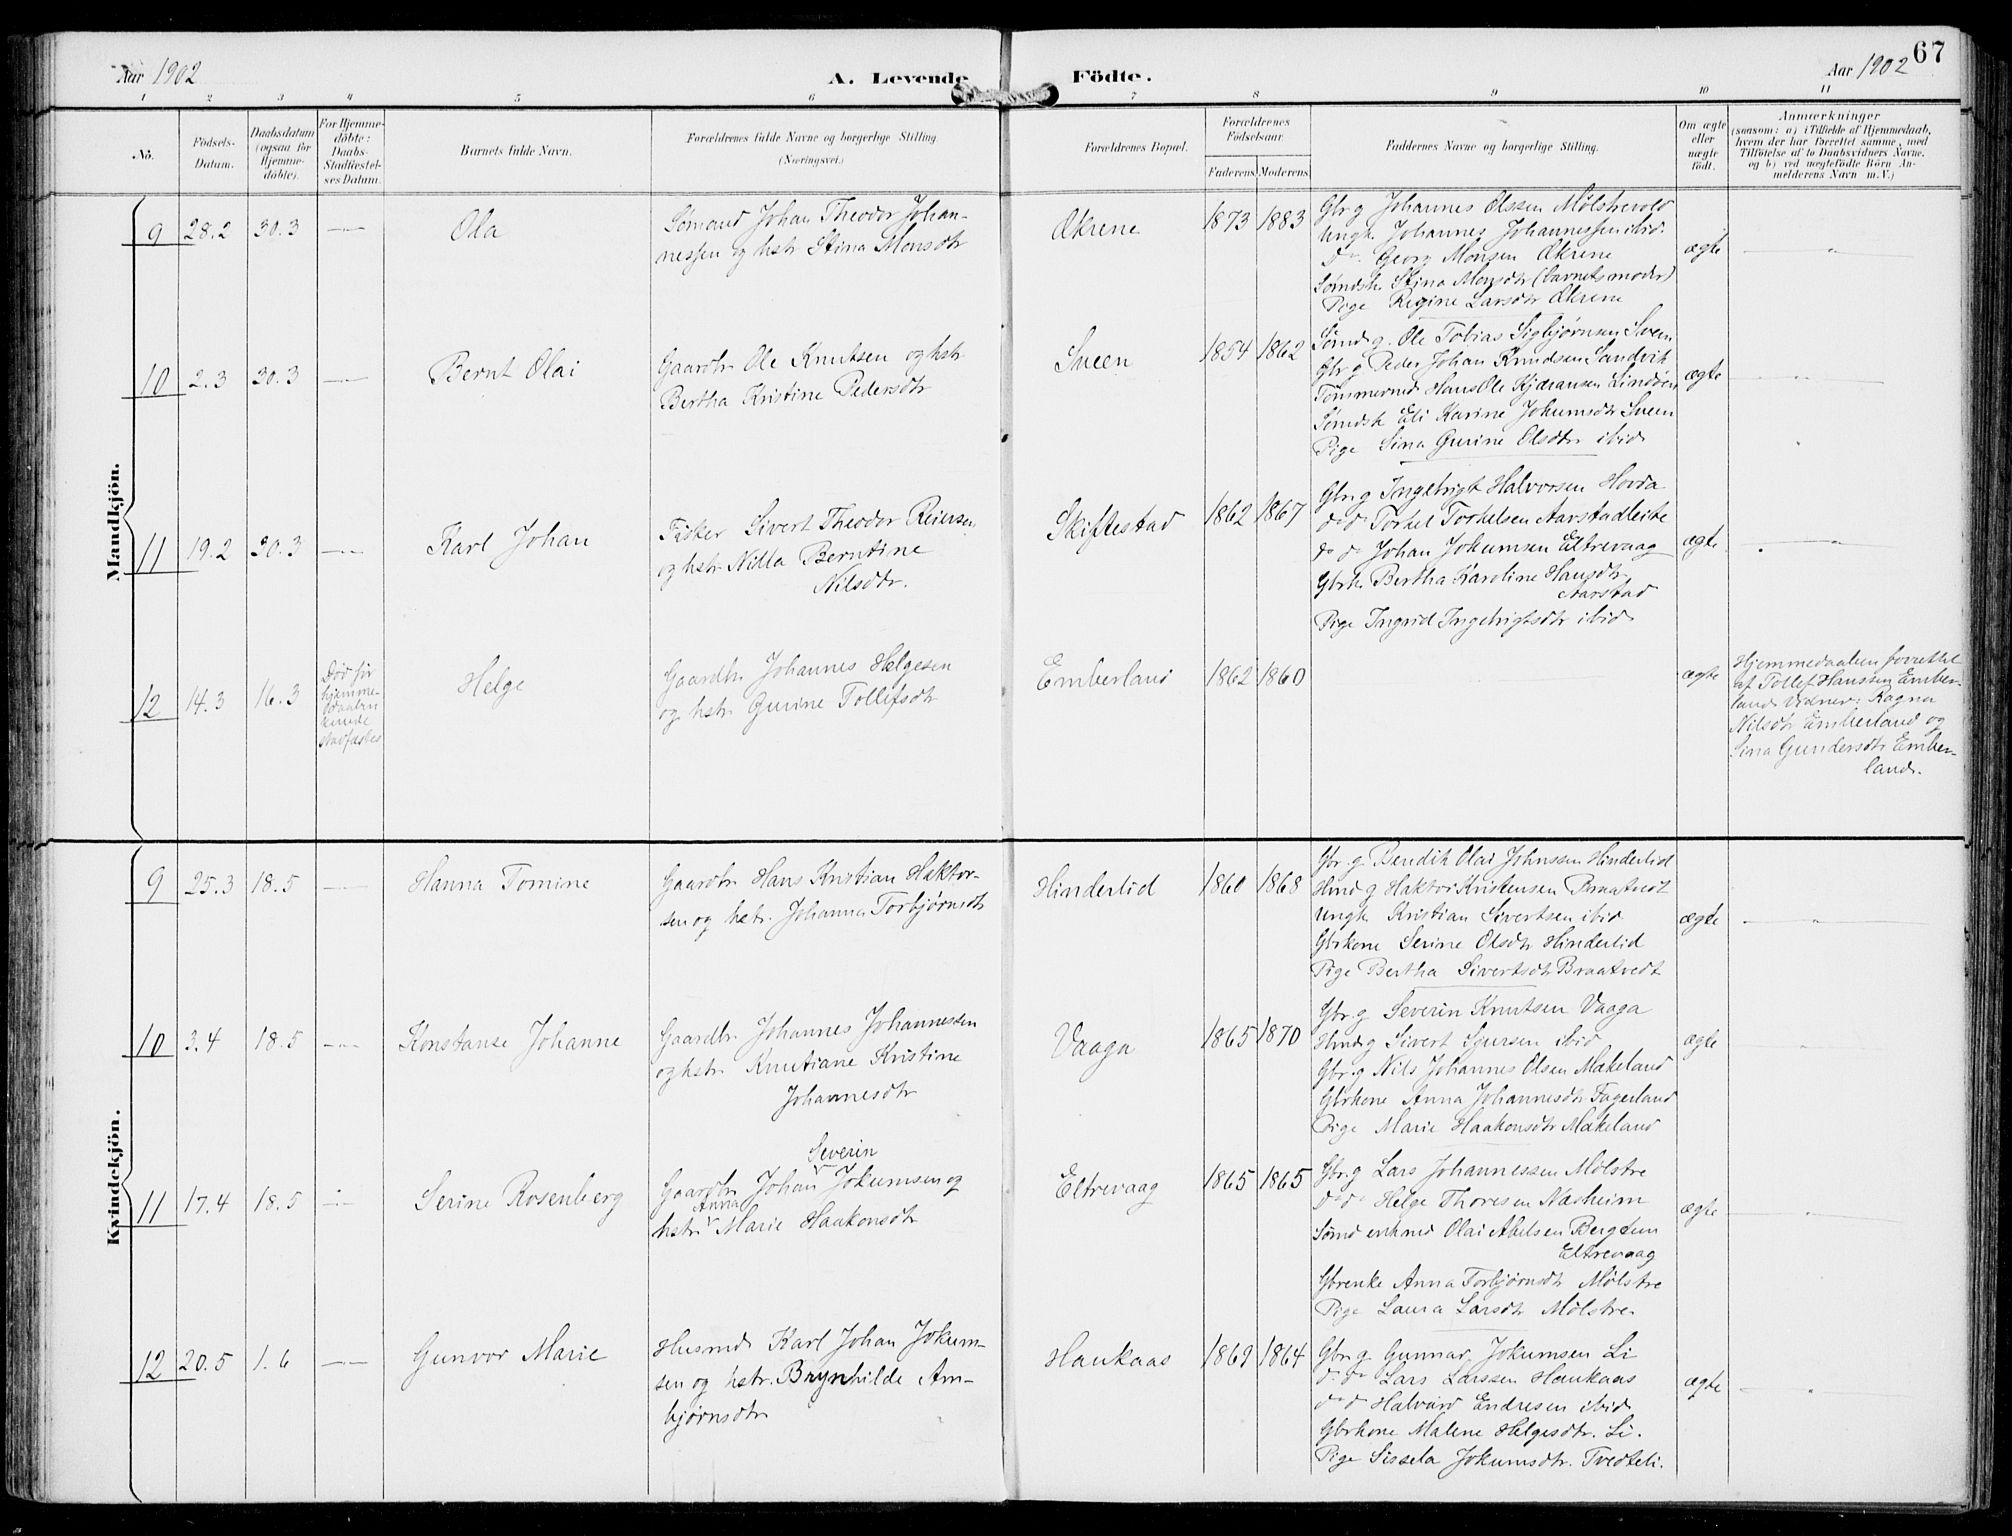 67
Aar 1902
A. Levende
Födte.
Aar 1902
1 2 3 4 5 6 7 8 9 10 11
No.
Födsels-
Datum.
Daabsdatum
(ogsaa for
Hjemme-
döbte).
For Hjemme-
döbte:
Daabs-
Stadfæstel-
ses Datum.
Barnets fulde Navn.
Forældrenes fulde Navne og borgerlige Stilling
(Næringsvei.)
Forældrenes Bopæl.
Forældrenes
Födselsaar.
Faderens
Moderens
Faddernes Navne og borgerlige Stilling.
Om ægte
eller
uægte
födt.
Anmærkninger
(saasom: a) i Tilfælde af Hjemmedaab,
hvem der har forrettet samme, med
Tilföielse af to Daabsvidners Navne.
og b) ved uægtefödte Börn An-
melderens Navn m. V.)
Mandkjön.
9 28.2 30.3 —
Ola
Sømand Johan Theodor Johan-
nessen og hstr Stina Monsdtr
Økrene
1873 1883
Gbr g Johannes Olssen Mølstrevold
Ungk. Johannes Johannessen ibid.
do. Georg Monsen Økrene
Sømdsk Stina Monsdtr (barnets moder)
Pige Regine Larsdtr Økrene
ægte
10 2.3 30.3 —
Bernt Olai
Gaardbr Ole Knutsen og hstr
Bertha Kristine Pedersdtr
Sveen
1854 1862
Sømd g. Ole Tobias Sigbjørnsen Sveen
Gbr g Peder Johan Knudsen Sandvik
Tømmermd Hans Ole Kjæransen Lindøen
Sømdsk Eli Karine Jokumsdtr Sveen
Pige Sina Gurine Olsdtr ibid
ægte
11 19.2 30.3 —
Karl Johan
Fisker Sivert Theodor Reiersen
og hstr Nilla Berntine
Nilsdtr.
Skiftestad
1862 1867
Gbr. g Ingebrigt Halvorsen Hovda
do do Torkel Torkelsen Aarstadleite
do do Johan Jokumsen Eltrevaag
Gbrk. Bertha Karoline Hansdtr
Aarstad
Pige Ingrid Ingebrigtsdtr ibid
ægte
12 14.3 16.3
Død før
hjemme-
daaben
kunde
stadfæstes
Helge
Gaardbr. Johannes Helgesen
og hstr Gurine Tollifsdtr
Emberland
1862 1860
ægte
Hjemmedaaben forrettet
af Tollef Hanssen Ember-
land. Vidner: Ragna
Nilsdtr Emberland og
Sina Gundersdtr Ember-
land.
Kvindekjön.
9 25.3 18.5 —
Hanna Tomine
Gaardbr. Hans Kristian Haktor-
sen og hstr. Johanna Torbjørnsdtr
Hinderlid
1860 1868
Gbr. g Bendik Olai Johnsen Hinderlid
Hmd g Haktor Kristensen Braatvedt
Ungk Kristian Sivertsen ibid
Gbrkone Serine Olsdtr Hinderlid
Pige Bertha Sivertsdtr Braatvedt
ægte
10 3.4 18.5 —
Konstanse Johanne
Gaardbr. Johannes Johannessen
og hstr. Knutiane Kristine
Johannesdtr
Vaaga
1865 1870
Gbr. g Severin Knutsen Vaaga
Hmd g Sivert Sjursen ibid
Gbr. g Nils Johannes Olsen Mækeland
Gbrkone Anna Johannesdtr Fagerland
Pige Marie Haakonsdtr Mækeland
ægte
11 17.4 18.5 —
Serine Rosenberg
Severin
Gaardbr Johan Jokumsen og
Anna
hstr Marie Haakonsdtr
Eltrevaag
1865 1865
Gbr. g Lars Johannessen Mølstre
do do Helge Thoresen Næsheim
Sømd enkmd Olai Abelsen Bergtun
Eltrevaag
Gbrenke Anna Torbjørnsdtr Mølstre
Pige Laura Larsdtr Mølstre
ægte
12 20.5 1.6 —
Gunvor Marie
Husmd Karl Johan Jokum-
sen og hstr. Brynhilde Am-
bjørnsdtr
Haukaas
1869 1864
Gbr. g Gunnar Jokumsen Li
do do Lars Larssen Haukaas
do do Halvard Endresen ibid
Gbrkone Malene Helgesdtr. Li.
Pige Sissela Jokumsdtr. Tvedteli.
ægte